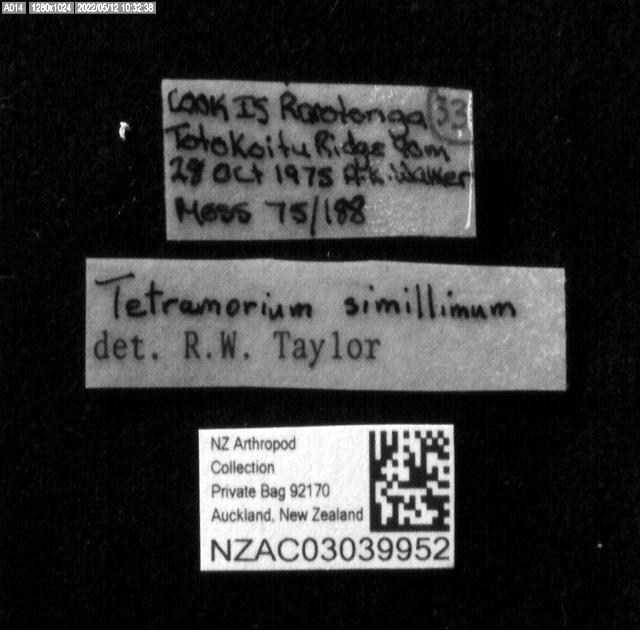 A014 1280x1024 2022/05/12 10:32:38
COOK IS Rarotonga 33
Totokoitu Ridge 90m
28 Oct 1975 A.K. Walker
Moss 75/188
Tetramorium simillimum
det. R.W. Taylor
NZ Arthropod
Collection
Private Bag 92170
Auckland, New Zealand
NZAC03039952